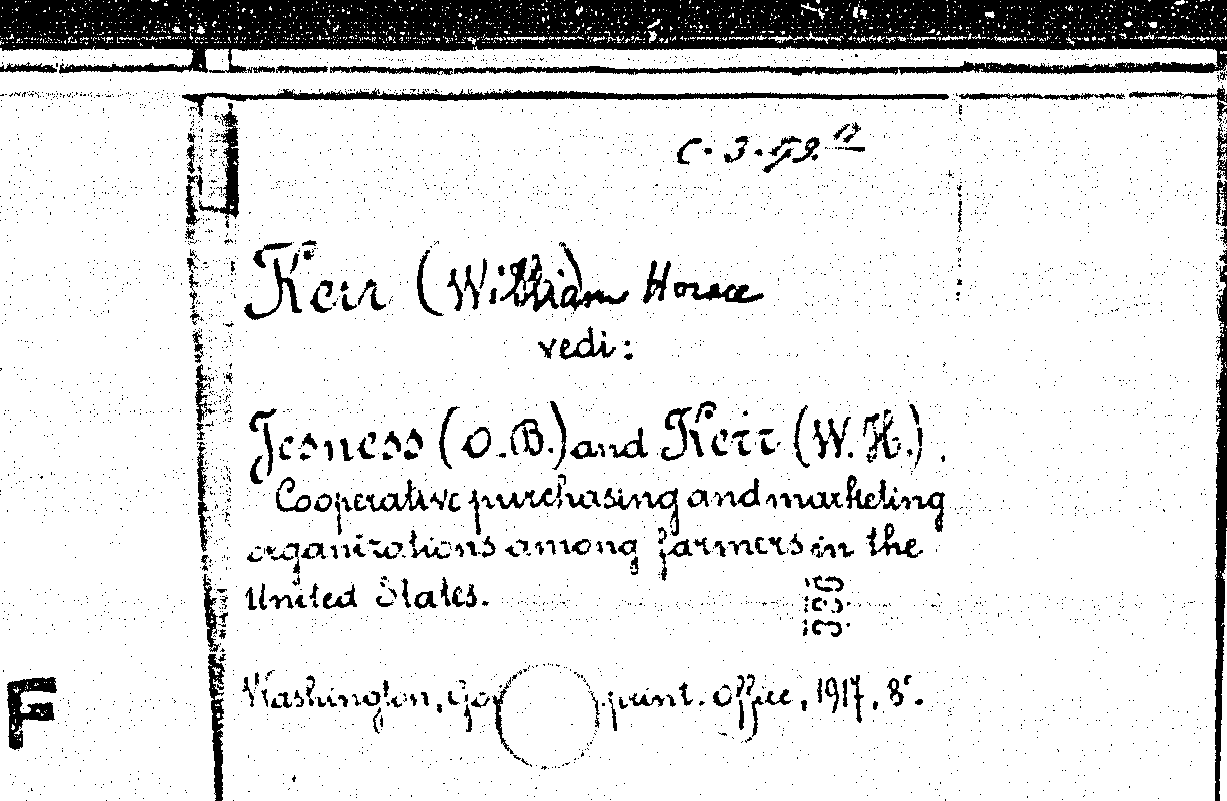 C. 3. 59.
Kerr (William) Horace
vedi:
Jesness (O.B.) and Kerr (W. H.).
Cooperative purchasing and marketing
organizations among farmers in the
United States.
Washington, Gov print. Office, 1917, 8°.
F